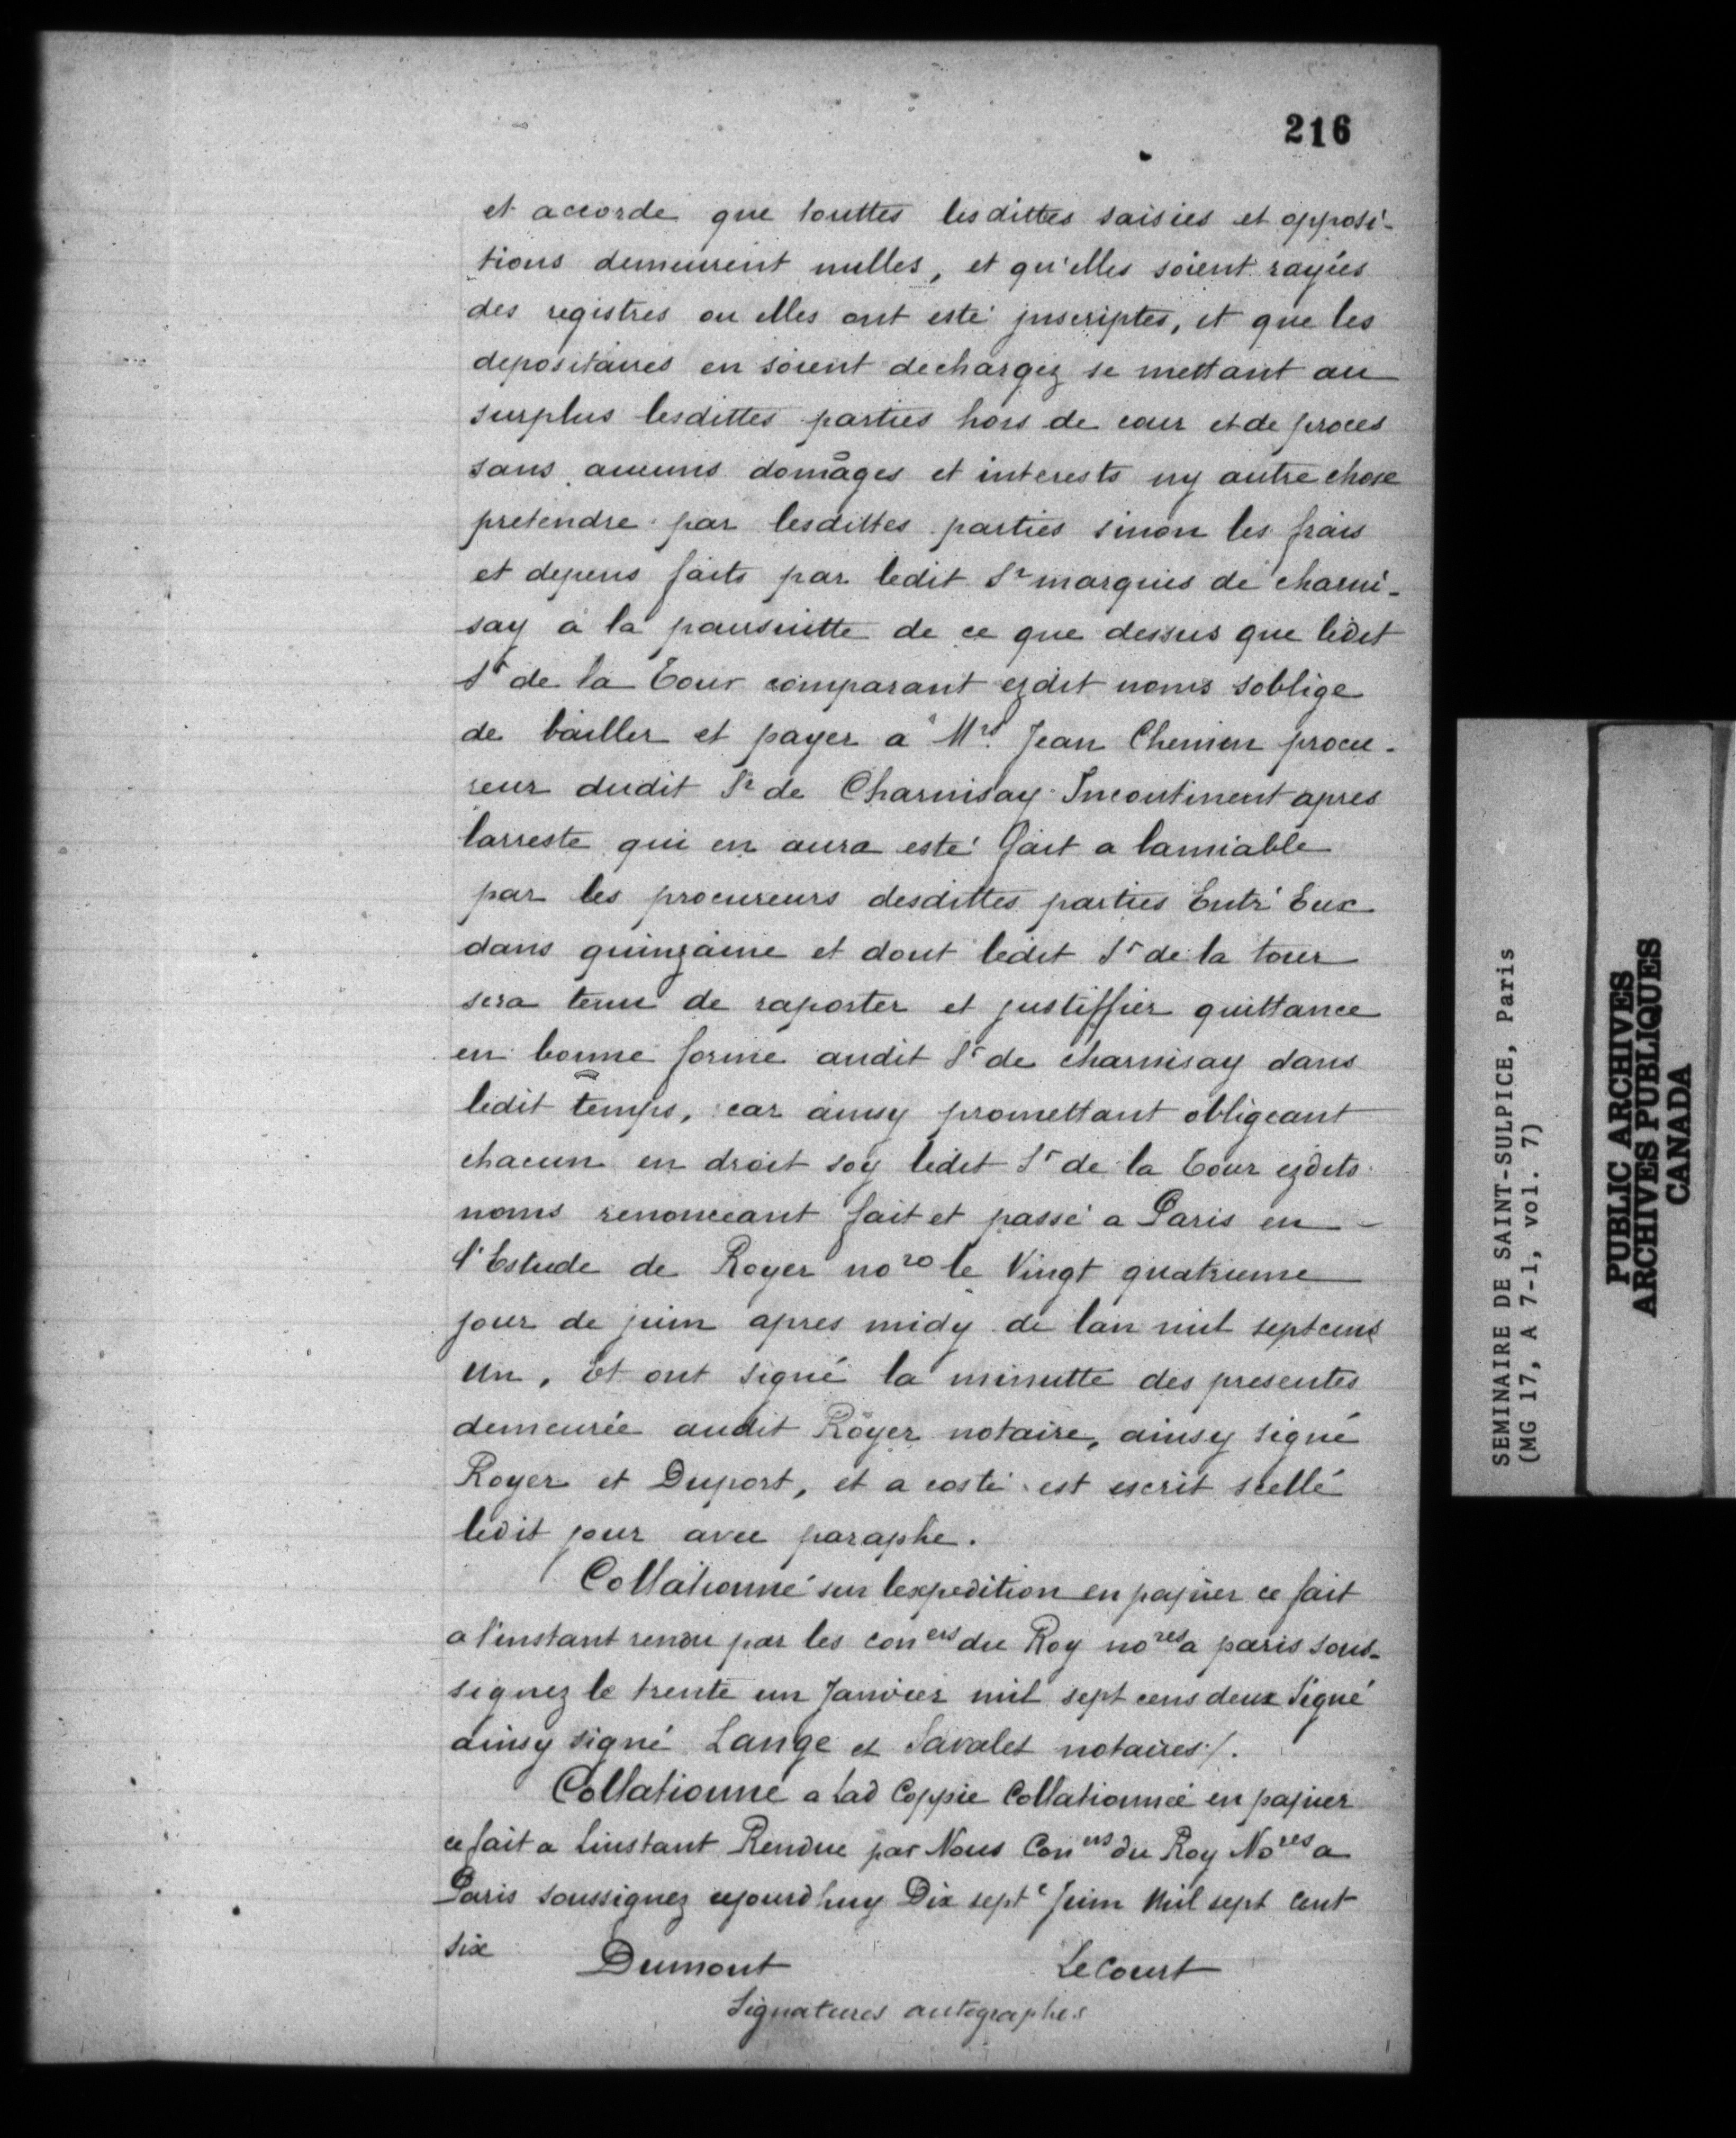 216
et accorde que touttes lesdittes saisies et opposi-
tions demeurent nulles, et qu'elles soient rayées
des registres ou elles ont esté jnscriptes, et que les
depositaires en soient dechargez se mettant au
surplus lesdittes parties hors de cour et de proces
sans aucuns domāges et interests ny autre chose
pretendre par lesdittes parties sinon les frais
et depens faits par ledit Sr marquis de charni-
say a la poursuitte de ce que dessus que ledit
Sr de la Tour comparant ezdit noms soblige
de bailler et payer a Mre Jean Chemin procu-
reur dudit Sr de Charnisay Incontinent apres
larreste qui en aura esté fait a lamiable
par les procureurs desdittes parties Entr'Eux
dans quinzaine et dont ledit Sr de la tour
sera tenu de raporter et justiffier quittance
en bonne forme audit Sr de charnisay dans
ledit temps, car ainsy promettant obligeant
chacun en droit soy ledit Sr de la Tour ezdits
noms renonceant fait et passé a Paris en
l'Estude de Royer nore le Vingt quatrieme
jour de juin apres midy de lan mil sept cens
un, Et ont signé la minutte des presentes
demeurée audit Royer notaire, ainsy signé
Royer et Duport, et a costé est escrit scellé
ledit jour avec paraphe.
Collationné sur lexpedition en papier ce fait
a l'instant rendu par les coners du Roy nores a paris sous-
signez le trente un Janvier mil sept cens deux Signé
ainsy signé Lange et Savalet notaires /.
Collationné a lad Coppie Collationnée en papier
ce fait a linstant Rendue par Nous Coners du Roy Nores a
Paris soussignez cejourdhuy Dix sept e Juin Mil sept Cent
six
Dumont LeCourt
Signatures autographes
SEMINAIRE DE SAINT-SULPICE, Paris
(MG 17, A 7-1, vol. 7)
PUBLIC ARCHIVES
ARCHIVES PUBLIQUES
CANADA